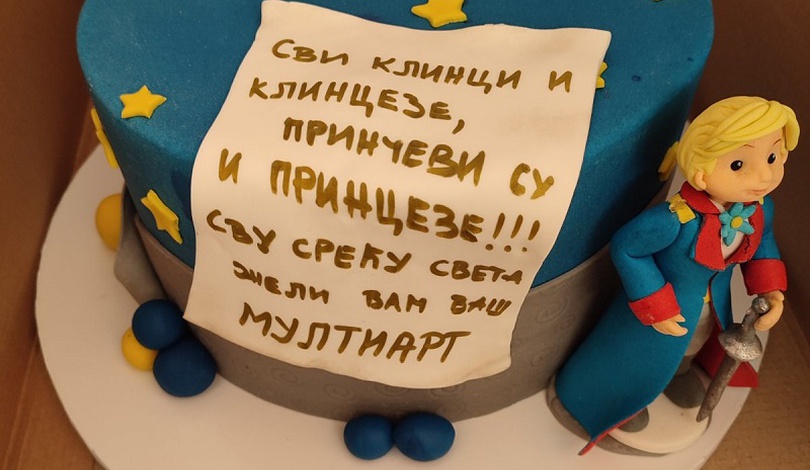 СВИ КЛИНЦИ И
КЛИНЦЕЗЕ,
ПРИНЧЕВИ СУ
И ПРИНЦЕЗЕ!!!
СВУ СРЕЋУ СВЕТА
ЖЕЛИ ВАМ ВАШ
МУЛТИАРТ